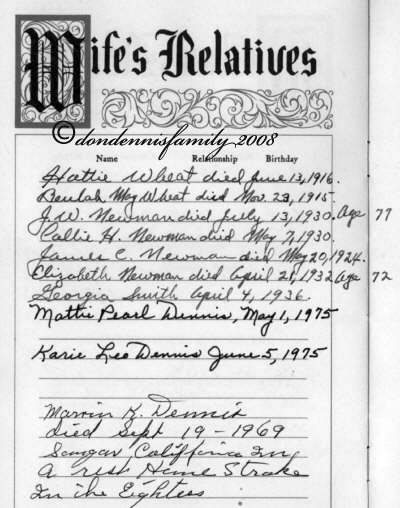 Wife's Relatives
©dondennisfamily 2008
Name Relationship Birthday
Hattie Wheat died June 13, 1916.
Beulah May Wheat died Nov. 23, 1915.
J.W. Newman died July 13, 1930. Age 77
Callie H. Newman died May 7, 1930.
James C. Newman died May 20, 1924.
Elizabeth Newman died April 21, 1932 Age 72
Georgia Smith April 4, 1936.
Mattie Pearl Dennis, May 1, 1975
Karie Lee Dennis June 5, 1975
Marvin K. Dennis
died Sept 19 - 1969
California In
a rest Home Stroke
In the Eightees